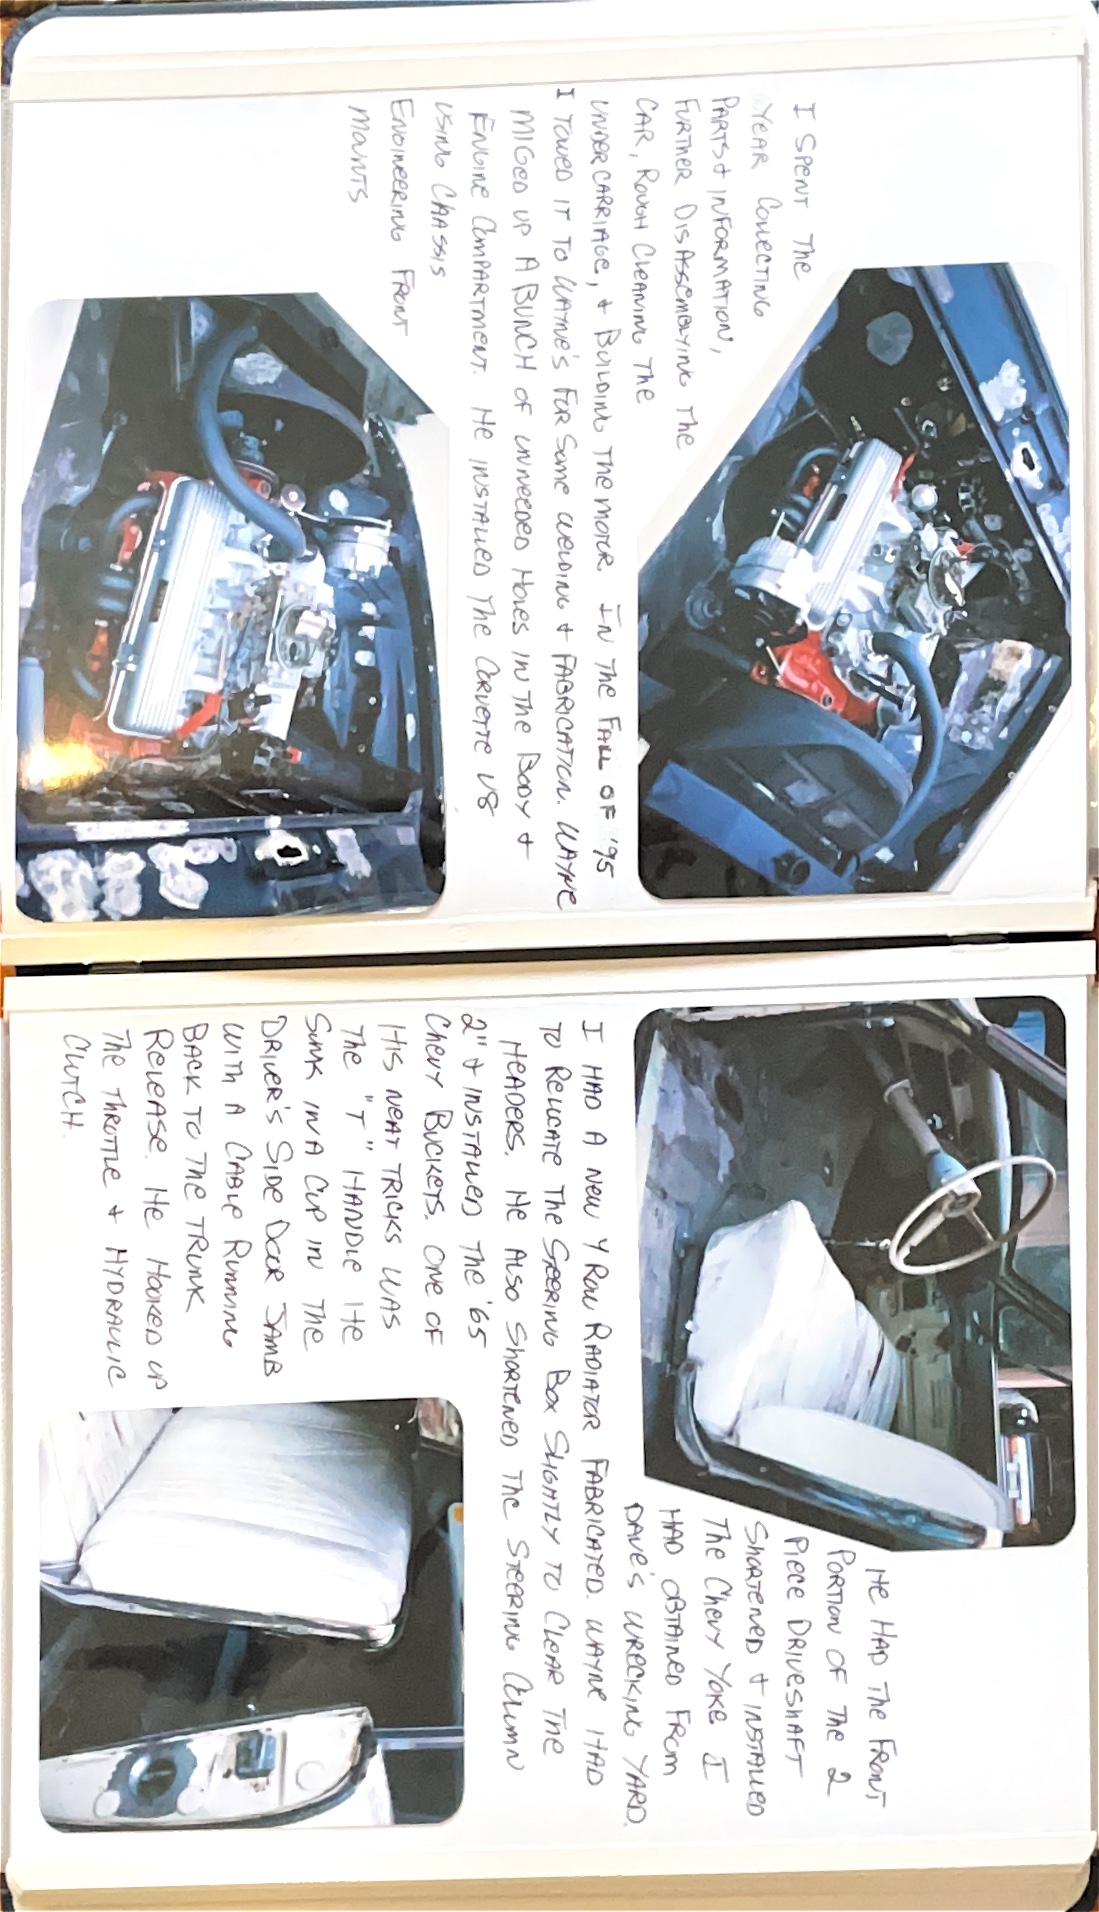 I SPENT THE
YEAR COLLECTING
PARTS & INFORMATION,
FURTHER DISASSEMBLYING THE
CAR, ROUGH CLEANING THE
UNDERCARRIAGE, & BUILDING THE MOTOR. IN THE FALL OF '95
I TOWED IT TO WAYNE'S FOR SOME WELDING & FABRICATION. WAYNE
MIGED UP A BUNCH OF UNNEEDED HOLES IN THE BODY &
ENGINE COMPARTMENT. HE INSTALLED THE CORVETTE V8
USING CHASSIS
ENGINEERING FRONT
MOUNTS
HE HAD THE FRONT
PORTION OF THE 2
PIECE DRIVESHAFT
SHORTENED & INSTALLED
THE CHEVY YOKE I
HAD OBTAINED FROM
DAVE'S WRECKING YARD.
I HAD A NEW 4 ROW RADIATOR FABRICATED. WAYNE HAD
TO RELOCATE THE STEERING BOX SLIGHTLY TO CLEAR THE
HEADERS. HE ALSO SHORTENED THE STEERING COLUMN
2" & INSTALLED THE '65
CHEVY BUCKETS. ONE OF
HIS NEAT TRICKS WAS
THE "T" HANDLE HE
SUNK IN A CUP IN THE
DRIVER'S SIDE DOOR JAMB
WITH A CABLE RUNNING
BACK TO THE TRUNK
RELEASE. HE HOOKED UP
THE THROTTLE & HYDRAULIC
CLUTCH.